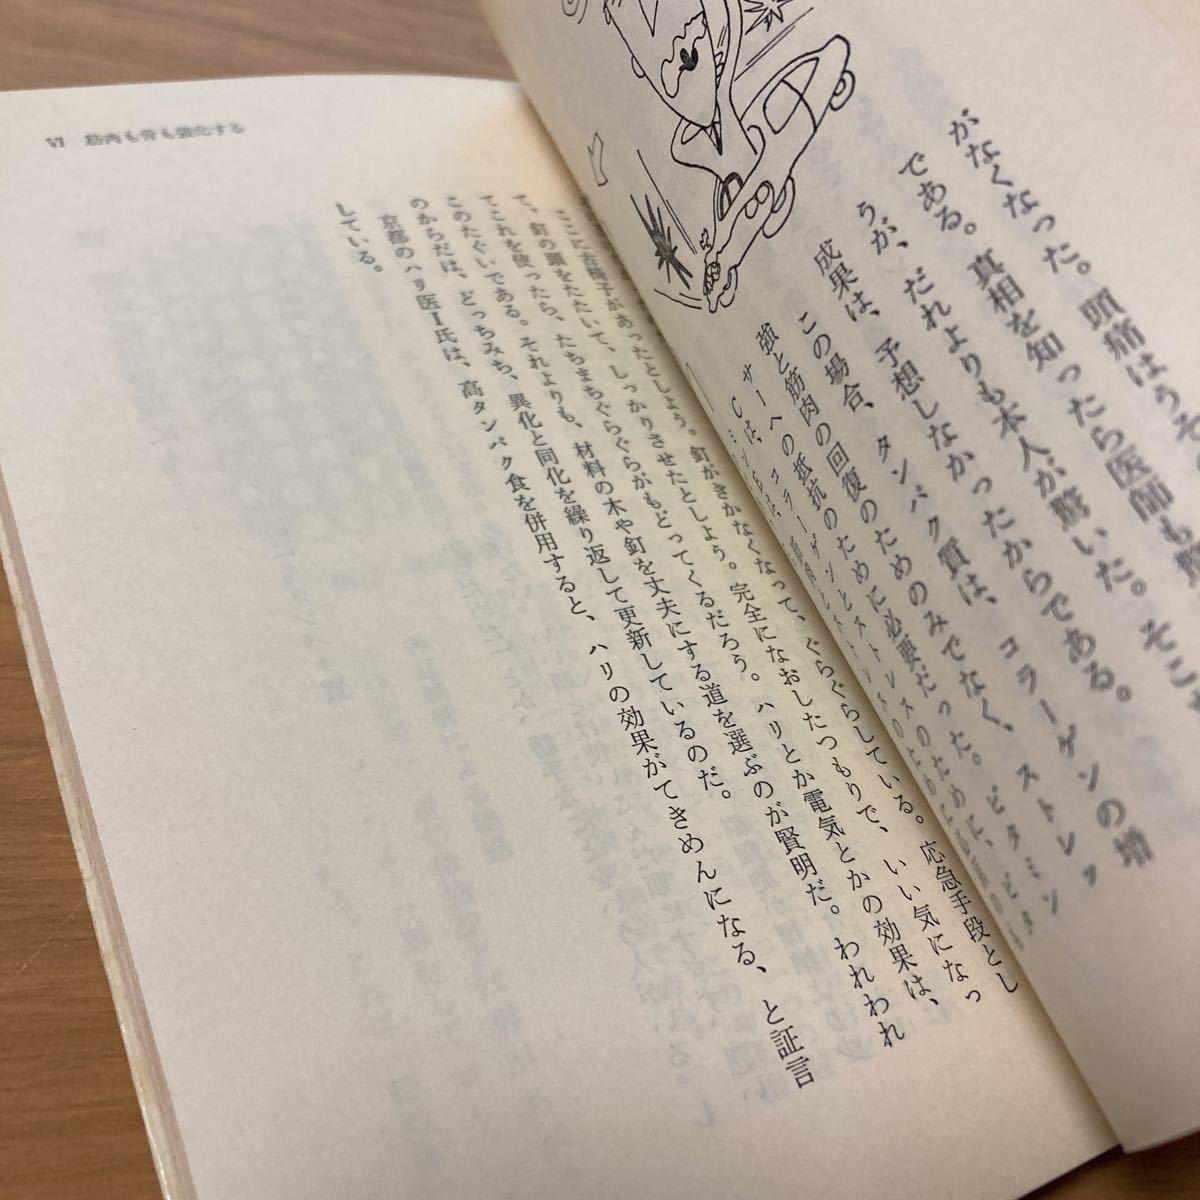 がなくなった。頭痛はうそ
である。真相を知ったら医師も驚
うが、だれよりも本人が驚いた。そこ
成果は、予想しなかったからである。
この場合、タンパク質は、コラーゲンの増
強と筋肉の回復のためのみでなく、ストレッ
サーへの抵抗のために必要だった。ビタミン
VI 筋肉も骨も強化する
ここに古椅子があったとしよう。釘がきかなくなって、ぐらぐらしている。応急手段とし
て、釘の頭をたたいて、しっかりさせたとしよう。完全になおしたつもりで、いい気になっ
てこれを使ったら、たちまちぐらぐらがもどってくるだろう。ハリとか電気とかの効果は、
このたぐいである。それよりも、材料の木や釘を丈夫にする道を選ぶのが賢明だ。われわれ
のからだは、どっちみち、異化と同化を繰り返して更新しているのだ。
京都のハリ医I氏は、高タンパク食を併用すると、ハリの効果がてきめんになる、と証言
している。